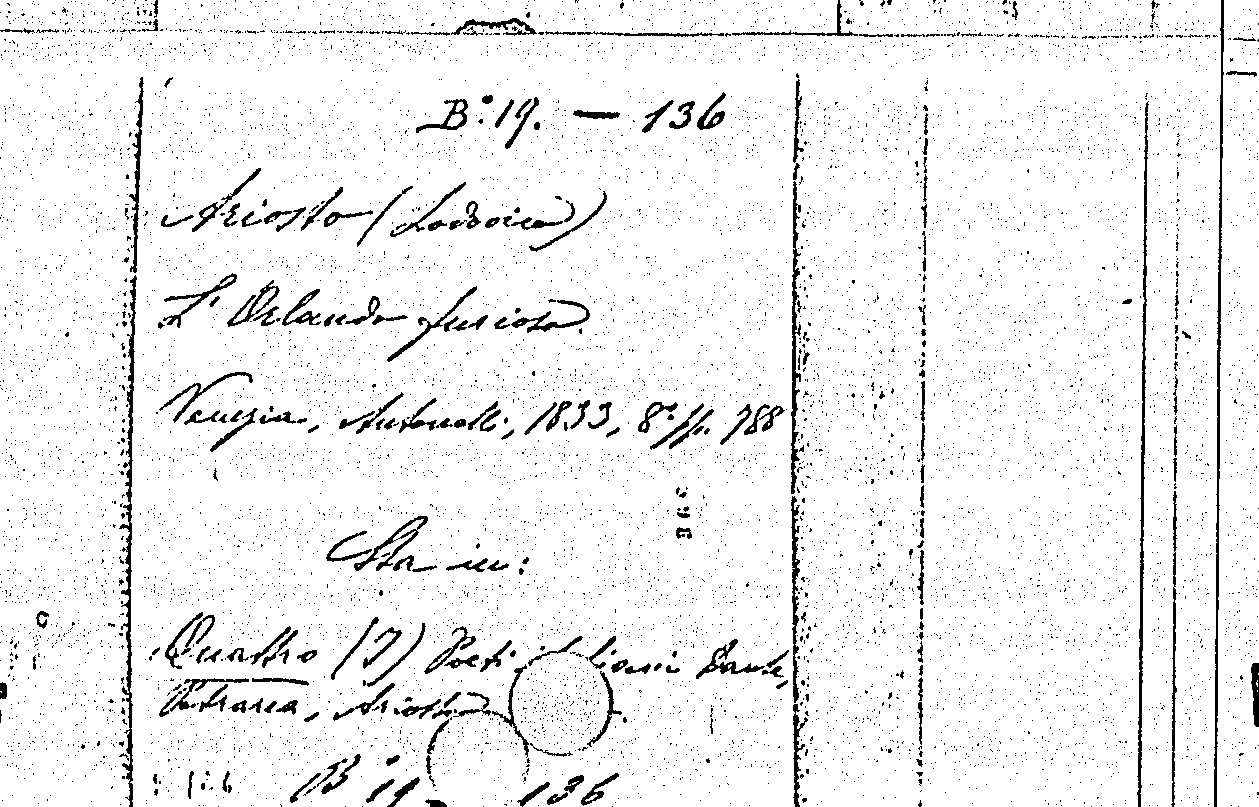 B.° 19. — 136
Ariosto (Lodovico)
L'Orlando furioso.
Venezia, Antonelli, 1833, 8.° pp. 788
Sta in:
Quattro (I) Poeti italiani Dante,
Petrarca, Ariosto
B.° 19 — 136